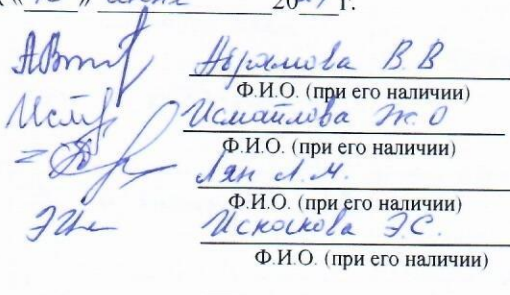 20 г.
Абрамова В.В
Ф.И.О. (при его наличии)
Исмайлова Ж.О
Ф.И.О. (при его наличии)
Лян Л.М.
Ф.И.О. (при его наличии)
Э.С.
Ф.И.О. (при его наличии)